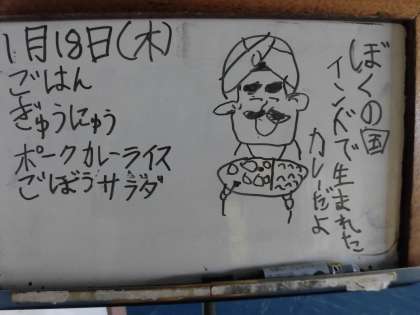 1月18日(木)
ごはん
ぎゅうにゅう
ポークカレーライス
ごぼうサラダ
ぼくの国
インドで生まれた
カレーだよ